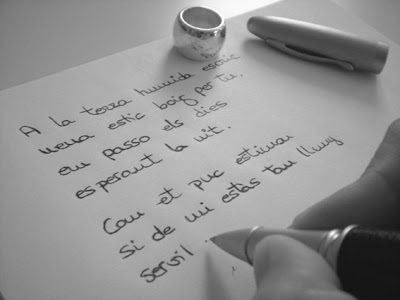 A la terra humida escric
nena estic boig per tu,
em passo els dies
esperant la nit.
Com et puc estimar
si de mi estàs tan lluny
servil